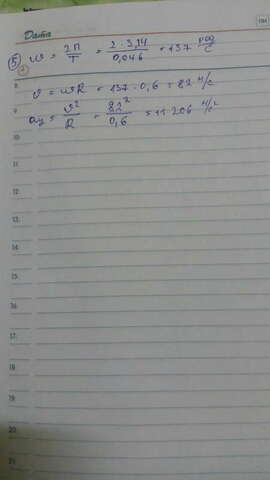 Дата
⑤ ω = 2π/T = 2 · 3,14/0,046 = 137 рад/с
8
υ = ωR = 137 · 0,6 = 82 м/с
9
aц = υ²/R = 82²/0,6 = 11 206 м/с²
10
11
12
13
14
15
16
17
18
19
20
21